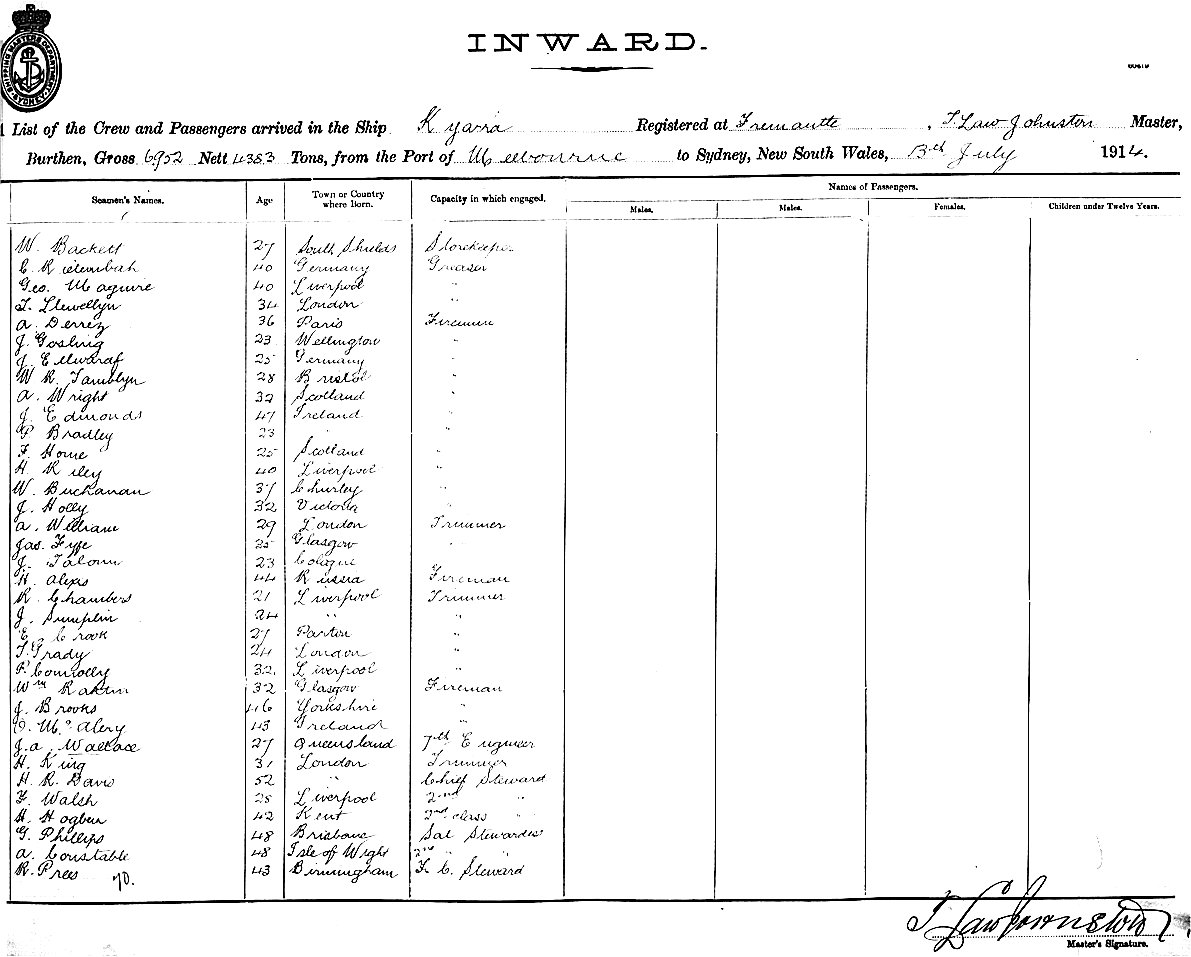 SHIPPING MASTERS DEPARTMENT SYDNEY
INWARD.
List of the Crew and Passengers arrived in the Ship Kyarra Registered at Fremantle, T. Law Johnston Master,
Burthen, Gross 6952 Nett 4383 Tons, from the Port of Melbourne to Sydney, New South Wales, 13th July 1914.
Names of Passengers.
Seamen's Names. Age Town or Country where Born. Capacity in which engaged. Males. Males. Females. Children under Twelve Years.
W. Backett 27 South Shields Storekeeper
40 Germany Greaser
Geo. Maguire 40 Liverpool "
T. Llewellyn 34 London "
A. Derrez 36 Paris Firemen
J. Gosling 23 Wellington "
J. 25 Germany "
W. R. Tamblyn 28 Bristol "
A. Wright 32 Scotland "
J. Edmonds 47 Ireland "
P. Bradley 23 " "
F. Horne 25 Scotland "
H. Riley 40 Liverpool "
W. Buchanan 37 Churley "
J. Holly 32 Victoria "
A. William 29 London Trimmer
Jas. Fyfe 25 Glasgow "
J. 23 "
H. Alexis 44 Russia Fireman
R. Chambers 21 Liverpool Trimmer
J. Sumplin 24 " "
E. Crook 27 Parton "
T. Grady 24 London "
P. Connolly 32 Liverpool "
Wm Rakin 32 Glasgow Fireman
J. Brooks 46 Yorkshire "
McAlery 43 Ireland "
J. A. Wallace 27 Queensland 7th Engineer
H. King 31 London Trimmer
H. R. Davis 52 " Chief Steward
F. Walsh 28 Liverpool 2nd "
H. Hogben 42 Kent 2nd class "
G. Phillips 48 Brisbane Sal Stewardess
A. Constable 48 Isle of Wight 2nd " "
R. Prees 43 Birmingham F. C. Steward
70.
T Law Johnston
Master's Signature.